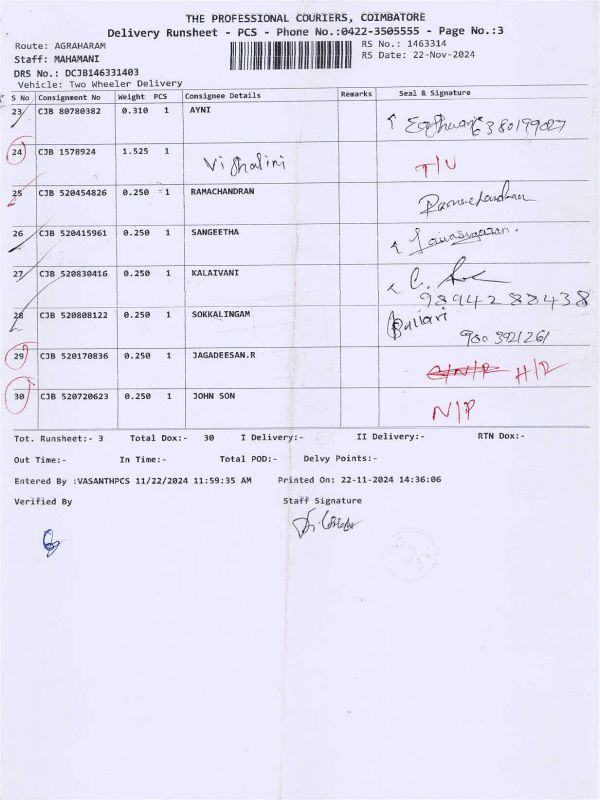 THE PROFESSIONAL COURIERS, COIMBATORE
Delivery Runsheet - PCS - Phone No.:0422-3505555 - Page No.:3
Route: AGRAHARAM RS No.: 1463314
Staff: MAHAMANI RS Date: 22-Nov-2024
DRS No.: DCJB146331403
Vehicle: Two Wheeler Delivery
S No Consignment No Weight PCS Consignee Details Remarks Seal & Signature
23 CJB 80780382 0.310 1 AYNI 6380199027
24 CJB 1578924 1.525 1 Vishalini T/U
25 CJB 520454826 0.250 1 RAMACHANDRAN Ramachandran
26 CJB 520415961 0.250 1 SANGEETHA
27 CJB 520830416 0.250 1 KALAIVANI
98942 88438
28 CJB 520808122 0.250 1 SOKKALINGAM
900 3921261
29 CJB 520170836 0.250 1 JAGADEESAN.R
30 CJB 520720623 0.250 1 JOHN SON N/P
Tot. Runsheet:- 3 Total Dox:- 30 I Delivery:- II Delivery:- RTN Dox:-
Out Time:- In Time:- Total POD:- Delvy Points:-
Entered By :VASANTHPCS 11/22/2024 11:59:35 AM Printed On: 22-11-2024 14:36:06
Verified By Staff Signature